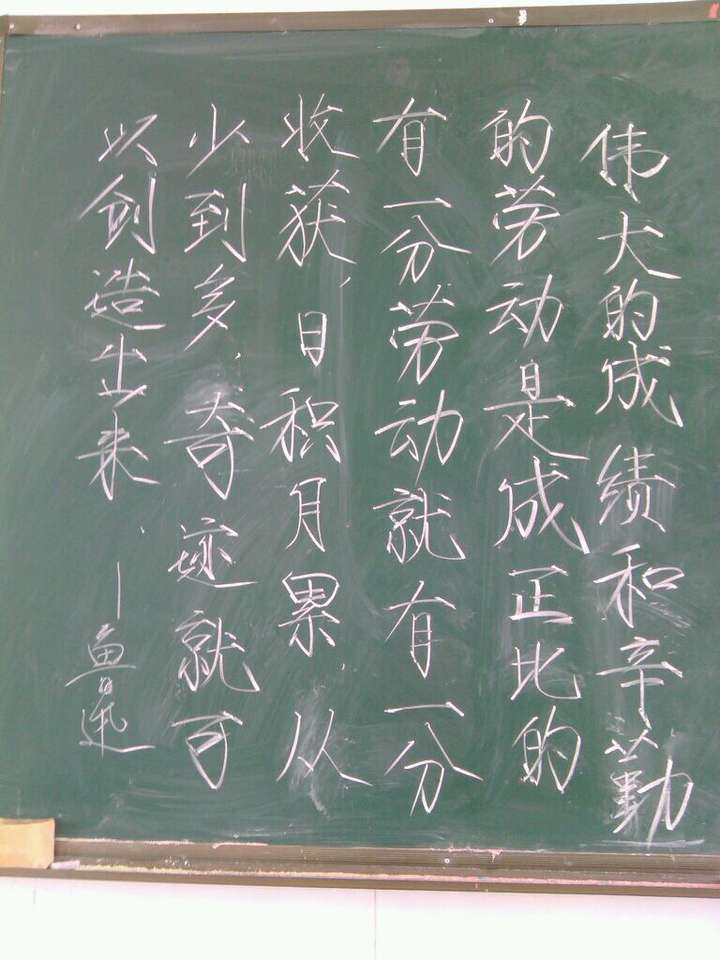 伟大的成绩和辛勤
的劳动是成正比的
有一分劳动就有一分
收获，日积月累，从
少到多，奇迹就可
以创造出来．
—鲁迅